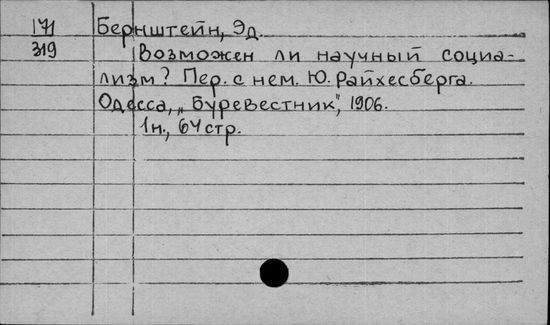 171 Бернштейн, Эд.
319 Возможен ли научный социа-
лизм? Пер. с нем. Ю. Райхесберга.
Одесса, „Буревестник", 1906.
1н., 64 стр.